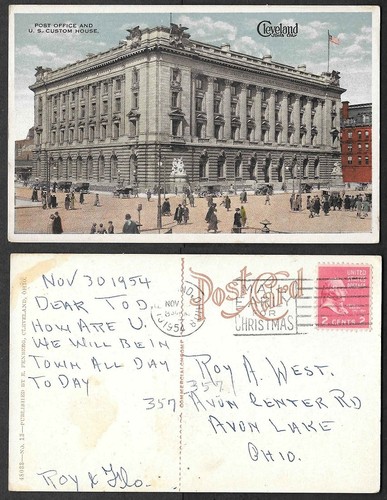 POST OFFICE AND
U. S. CUSTOM HOUSE.
Cleveland
SIXTH CITY
NOV 30 1954
DEAR TOD.
HOW ARE U.
WE WILL BE IN
TOWN ALL DAY
TO DAY
357
ROY & FLO.
Post Card
NOV
1954
OHIO
MAIL
EARLY
FOR
CHRISTMAS
UNITED
2 CENTS 2
ROY A. WEST.
357
AVON CENTER RD
AVON LAKE
OHIO.
48035—NO. 13—PUBLISHED BY E. FENBERG, CLEVELAND, OHIO